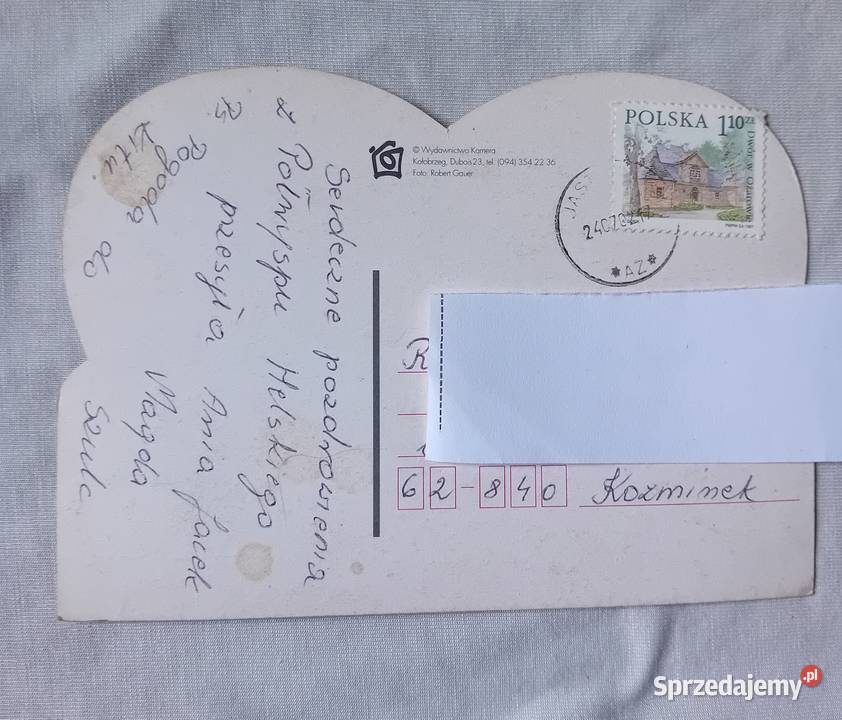 Serdeczne pozdrowienia
z Półwyspu Helskiego
przesyła Ania Jacek
Magda
Szulc
Pogoda do
kitu.
© Wydawnictwo Kamera
Kołobrzeg, Dubois 23, tel. (094) 354 22 36
Foto: Robert Gauer
POLSKA 1,10 zł
Dwór w Ożarowie
JAS
*AZ*
62-840 Koźminek
Sprzedajemy.pl